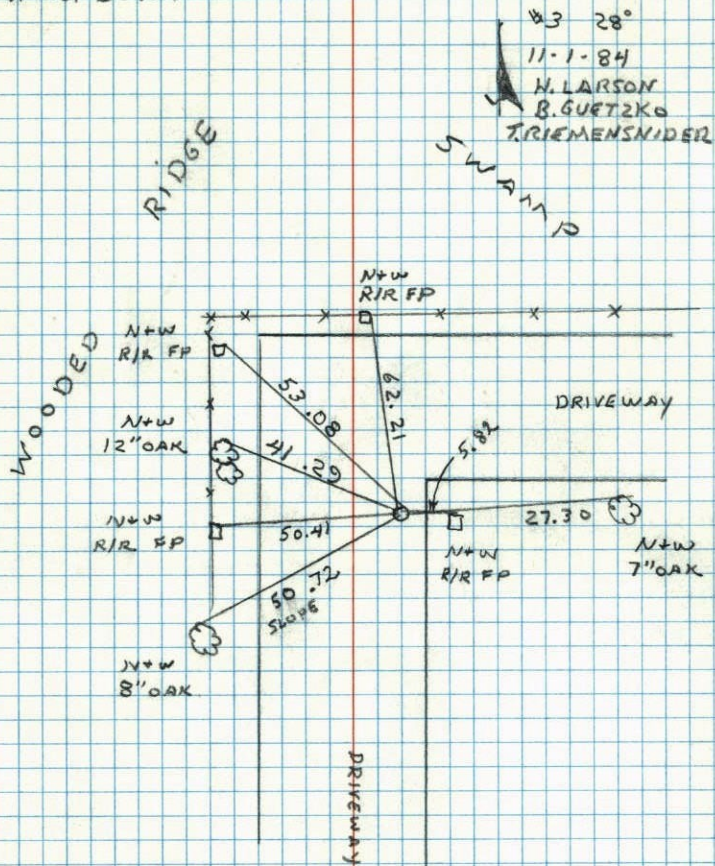 #3 28°
11-1-84
N. LARSON
B. GUETZKO
T. RIEMENSNIDER
RIDGE
SWAMP
WOODED
N+W
R/R FP
N+W
R/R FP
N+W
12" OAK
N+W
R/R FP
N+W
8" OAK
53.08
41.29
50.41
50.72
SLOPE
62.21
5.82
DRIVEWAY
27.30
N+W
R/R FP
N+W
7" OAK
DRIVEWAY